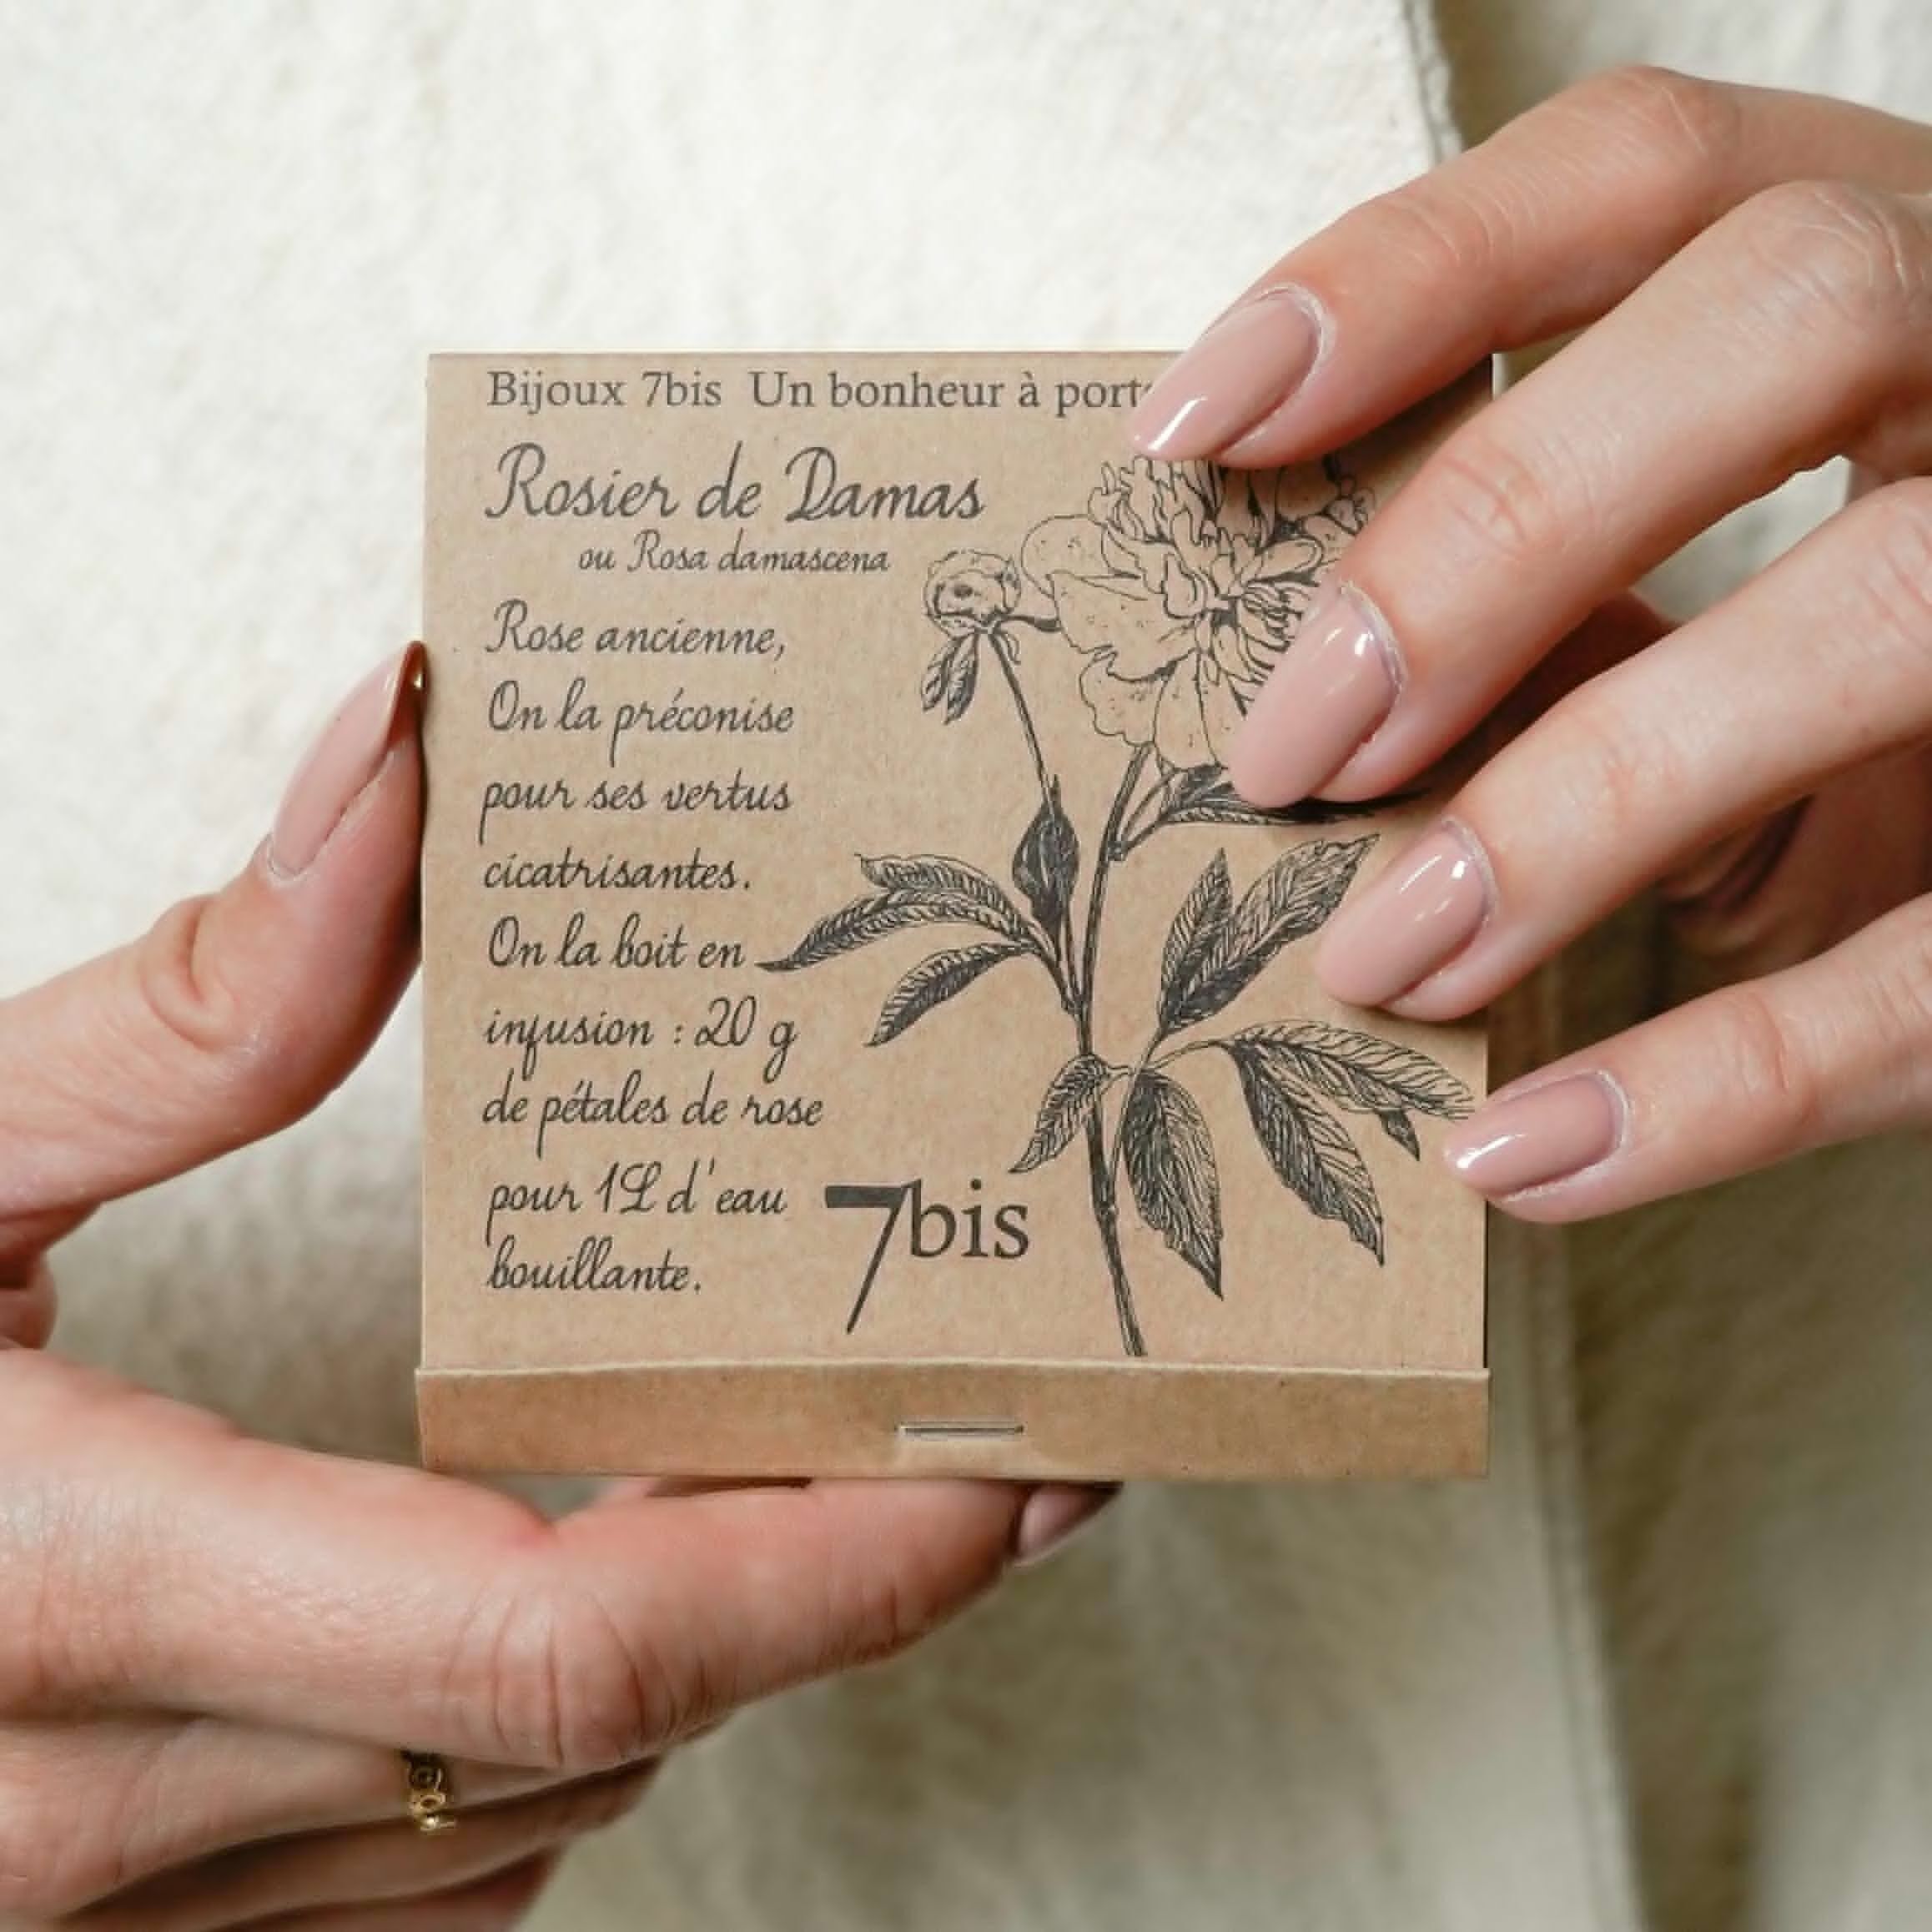 Bijoux 7bis Un bonheur à
Rosier de Damas
ou Rosa damascena
Rose ancienne,
On la préconise
pour ses vertus
cicatrisantes.
On la boit en
infusion : 20 g
de pétales de rose
pour 1L d'eau
bouillante.
7bis